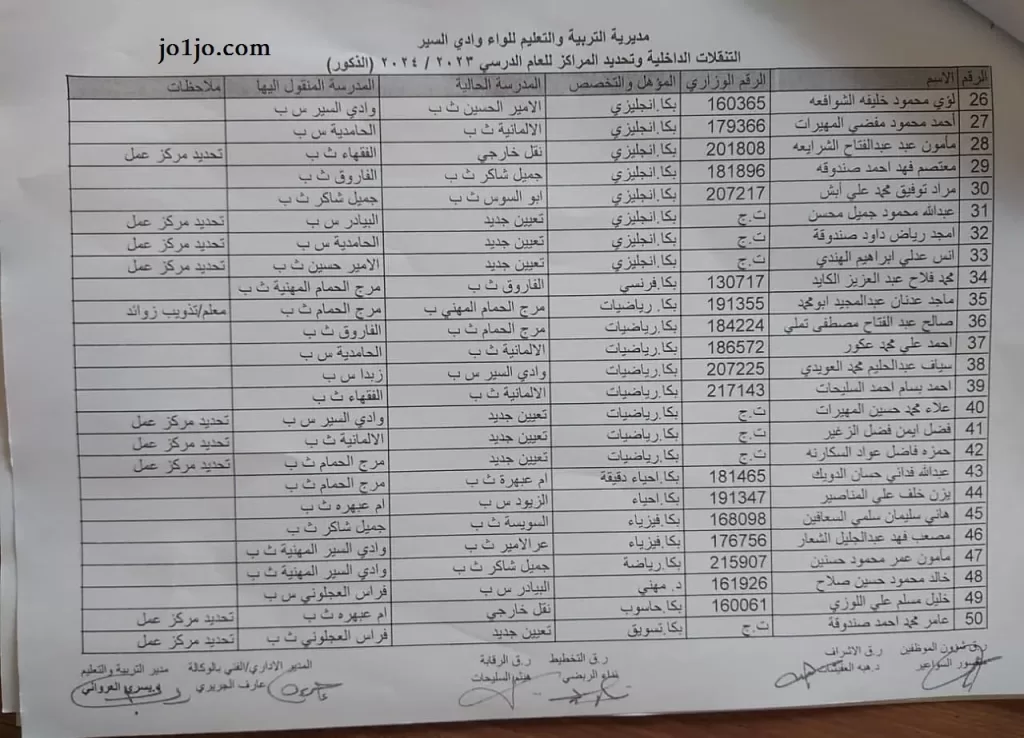 jo1jo.com
مديرية التربية والتعليم للواء وادي السير
التنقلات الداخلية وتحديد المراكز للعام الدرسي ٢٠٢٣ / ٢٠٢٤ (الذكور)
الرقم الاسم الرقم الوزاري المؤهل والتخصص المدرسة الحالية المدرسة المنقول اليها ملاحظات
26 لؤي محمود خليفه الشوافعه 160365 بكا.انجليزي الامير الحسين ث ب وادي السير س ب
27 أحمد محمود مفضي المهيرات 179366 بكا.انجليزي الالمانية ث ب الحامدية س ب
28 مأمون عبد عبدالفتاح الشرايعه 201808 بكا.انجليزي نقل خارجي الفقهاء ث ب تحديد مركز عمل
29 معتصم فهد احمد صندوقه 181896 بكا.انجليزي جميل شاكر ث ب الفاروق ث ب
30 مراد توفيق محمد علي أبش 207217 بكا.انجليزي ابو السوس ث ب جميل شاكر ث ب
31 عبدالله محمود جميل محسن ت.ج بكا.انجليزي تعيين جديد البيادر س ب تحديد مركز عمل
32 امجد رياض داود صندوقة ت.ج بكا.انجليزي تعيين جديد الحامدية س ب تحديد مركز عمل
33 انس عدلي ابراهيم الهندي ت.ج بكا.انجليزي تعيين جديد الامير حسين ث ب تحديد مركز عمل
34 محمد فلاح عبد العزيز الكايد 130717 بكا.فرنسي الفاروق ث ب مرج الحمام المهنية ث ب
35 ماجد عدنان عبدالمجيد ابومحمد 191355 بكا. رياضيات مرج الحمام المهني ب مرج الحمام ث ب معلم/تذويب زوائد
36 صالح عبد الفتاح مصطفى تملي 184224 بكا.رياضيات مرج الحمام ث ب الفاروق ث ب
37 احمد علي محمد عكور 186572 بكا.رياضيات الالمانية ث ب الحامدية س ب
38 سياف عبدالحليم محمد العويدي 207225 بكا.رياضيات وادي السير س ب زبدا س ب
39 احمد بسام احمد السليحات 217143 بكا.رياضيات الالمانية ث ب الفقهاء ث ب
40 علاء محمد حسين المهيرات ت.ج بكا.رياضيات تعيين جديد وادي السير س ب تحديد مركز عمل
41 فضل ايمن فضل الزغير ت.ج بكا.رياضيات تعيين جديد الالمانية ث ب تحديد مركز عمل
42 حمزه فاضل عواد السكارنه ت.ج بكا.رياضيات تعيين جديد مرج الحمام ث ب تحديد مركز عمل
43 عبدالله فداني حسان الدويك 181465 بكا.احياء دقيقة ام عبهرة ث ب مرج الحمام ث ب
44 يزن خلف علي المناصير 191347 بكا.احياء الزيود س ب ام عبهره ث ب
45 هاني سليمان سلمي السعافين 168098 بكا.فيزياء السويسة ث ب جميل شاكر ث ب
46 مصعب فهد عبدالجليل الشعار 176756 بكا.فيزياء عرالامير ث ب وادي السير المهنية ث ب
47 مأمون عمر محمود حسنين 215907 بكا.رياضة جميل شاكر ث ب وادي السير المهنية ث ب
48 خالد محمود حسين صلاح 161926 د. مهني البيادر س ب فراس العجلوني س ب
49 خليل مسلم علي اللوزي 160061 بكا.حاسوب نقل خارجي ام عبهره ث ب تحديد مركز عمل
50 عامر محمد احمد صندوقة ت.ج بكا.تسويق تعيين جديد فراس العجلوني ث ب تحديد مركز عمل
ر.ق شؤون الموظفين ر.ق الاشراف ر.ق التخطيط ر.ق الرقابة المدير الاداري/الفني بالوكالة مدير التربية والتعليم
السواعير د.هبه العفيشات الربضي هيثم السليحات عارف الجريري ويسري العرواني